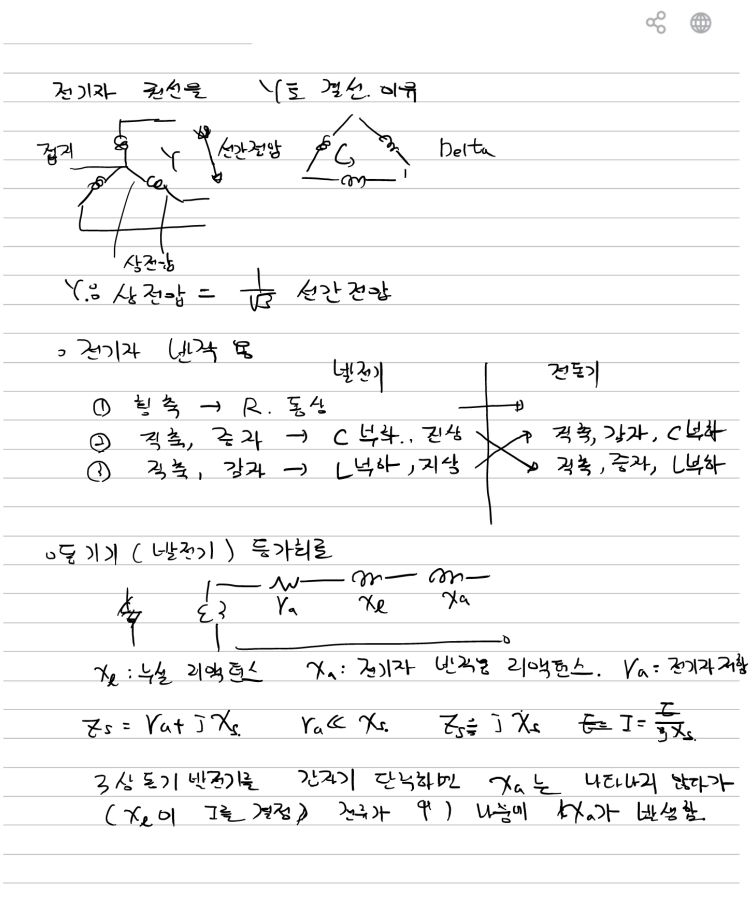 전기자 권선을 Y로 결선. 이유
접지 Y 선간전압 Delta
상전압
Y: 상전압 = 1/√3 선간전압
◦ 전기자 반작용
발전기 전동기
① 횡축 → R. 동상 →
② 직축, 증자 → C부하., 진상 직축, 감자, C부하
③ 직축, 감자 → L부하, 지상 직축, 증자, L부하
◦ 동기기 (발전기) 등가회로
ra xl xa
xl : 누설 리액턴스 xa : 전기자 반작용 리액턴스. ra = 전기자저항
Zs = ra + jXs. ra ≪ Xs. Zs ≒ jXs I = E/jXs.
3상 동기 발전기를 갑자기 단락하면 xa는 나타나지 않다가
(xl이 I를 결정, 전류가 ↑) 나중에 xa가 발생함.